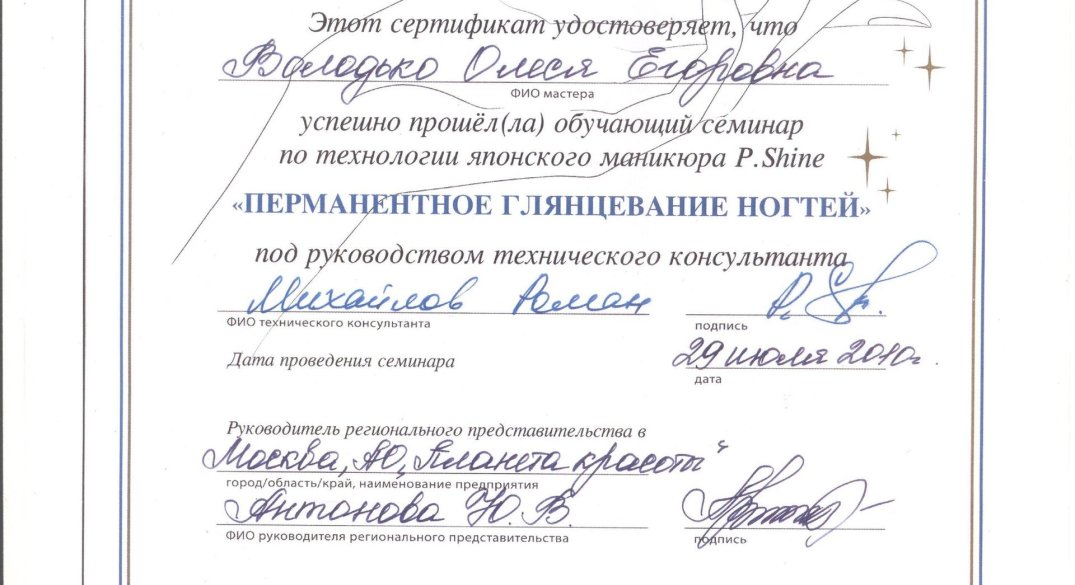 Этот сертификат удостоверяет, что
Володько Олеся Егоровна
ФИО мастера
успешно прошёл(ла) обучающий семинар
по технологии японского маникюра P.Shine
«ПЕРМАНЕНТНОЕ ГЛЯНЦЕВАНИЕ НОГТЕЙ»
под руководством технического консультанта
Михайлов Роман
ФИО технического консультанта
подпись
Дата проведения семинара
29 июля 2010г.
дата
Руководитель регионального представительства в
Москва, АО, "Планета красоты"
город/область/край, наименование предприятия
Антонова Ю. В.
ФИО руководителя регионального представительства
подпись